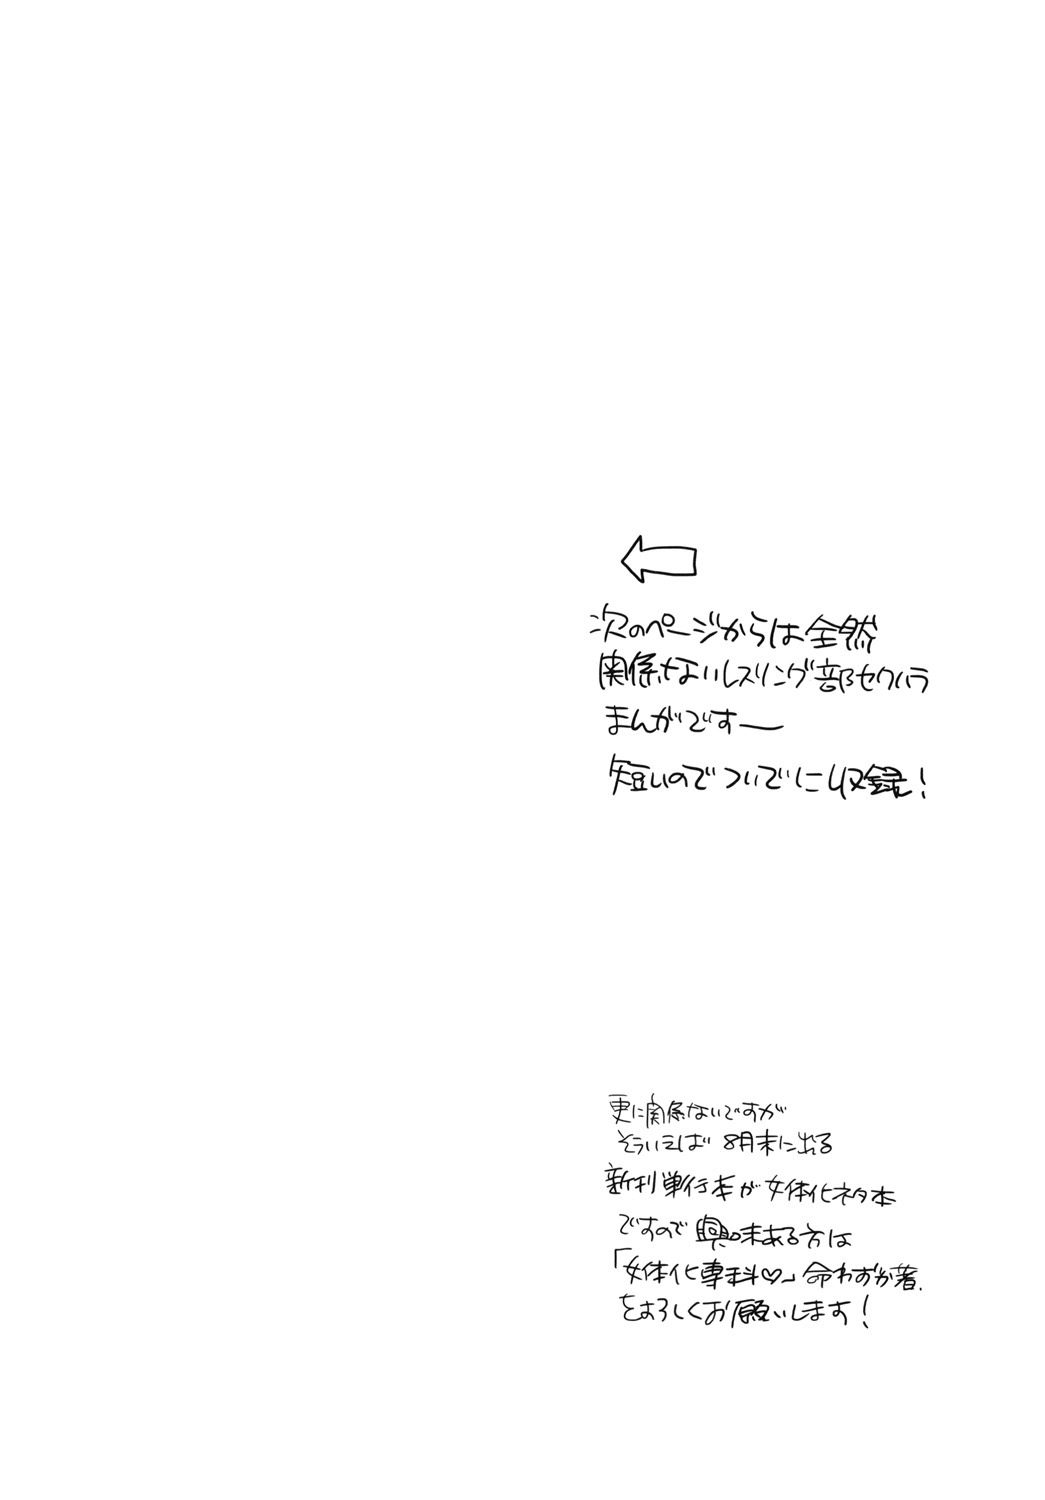 次のページからは全然
関係ないレスリング部セクハラ
まんがですー
短いのでついでに収録!
更に関係ないですが
そういえば 8月末に出る
新刊単行本が女体化ネタ本
ですので興味ある方は
「女体化専科♡」命わずか著.
をよろしくお願いします!